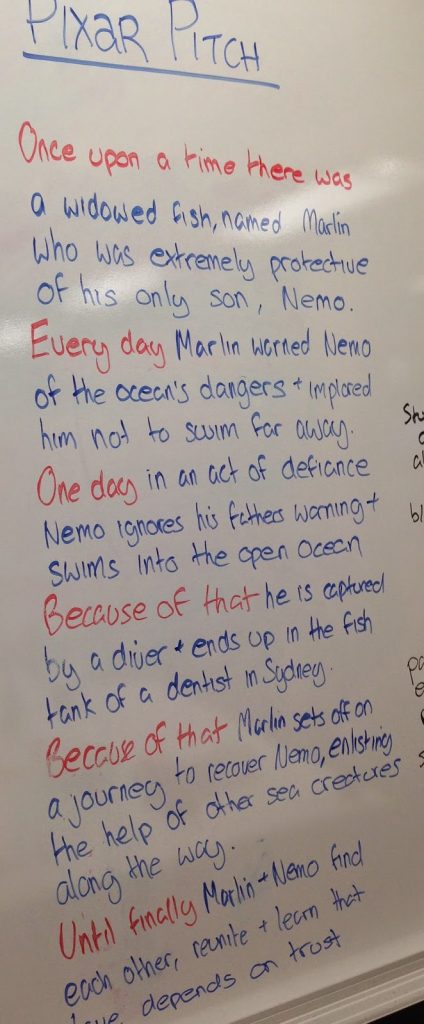 PIXAR PITCH
Once upon a time there was
a widowed fish, named Marlin
who was extremely protective
of his only son, Nemo.
Every day Marlin warned Nemo
of the ocean's dangers + implored
him not to swim far away.
One day in an act of defiance
Nemo ignores his fathers warning +
swims into the open ocean
Because of that he is captured
by a diver + ends up in the fish
tank of a dentist in Sydney.
Because of that Marlin sets off on
a journey to recover Nemo, enlisting
the help of other sea creatures
along the way.
Until finally Marlin + Nemo find
each other, reunite + learn that
love depends on trust